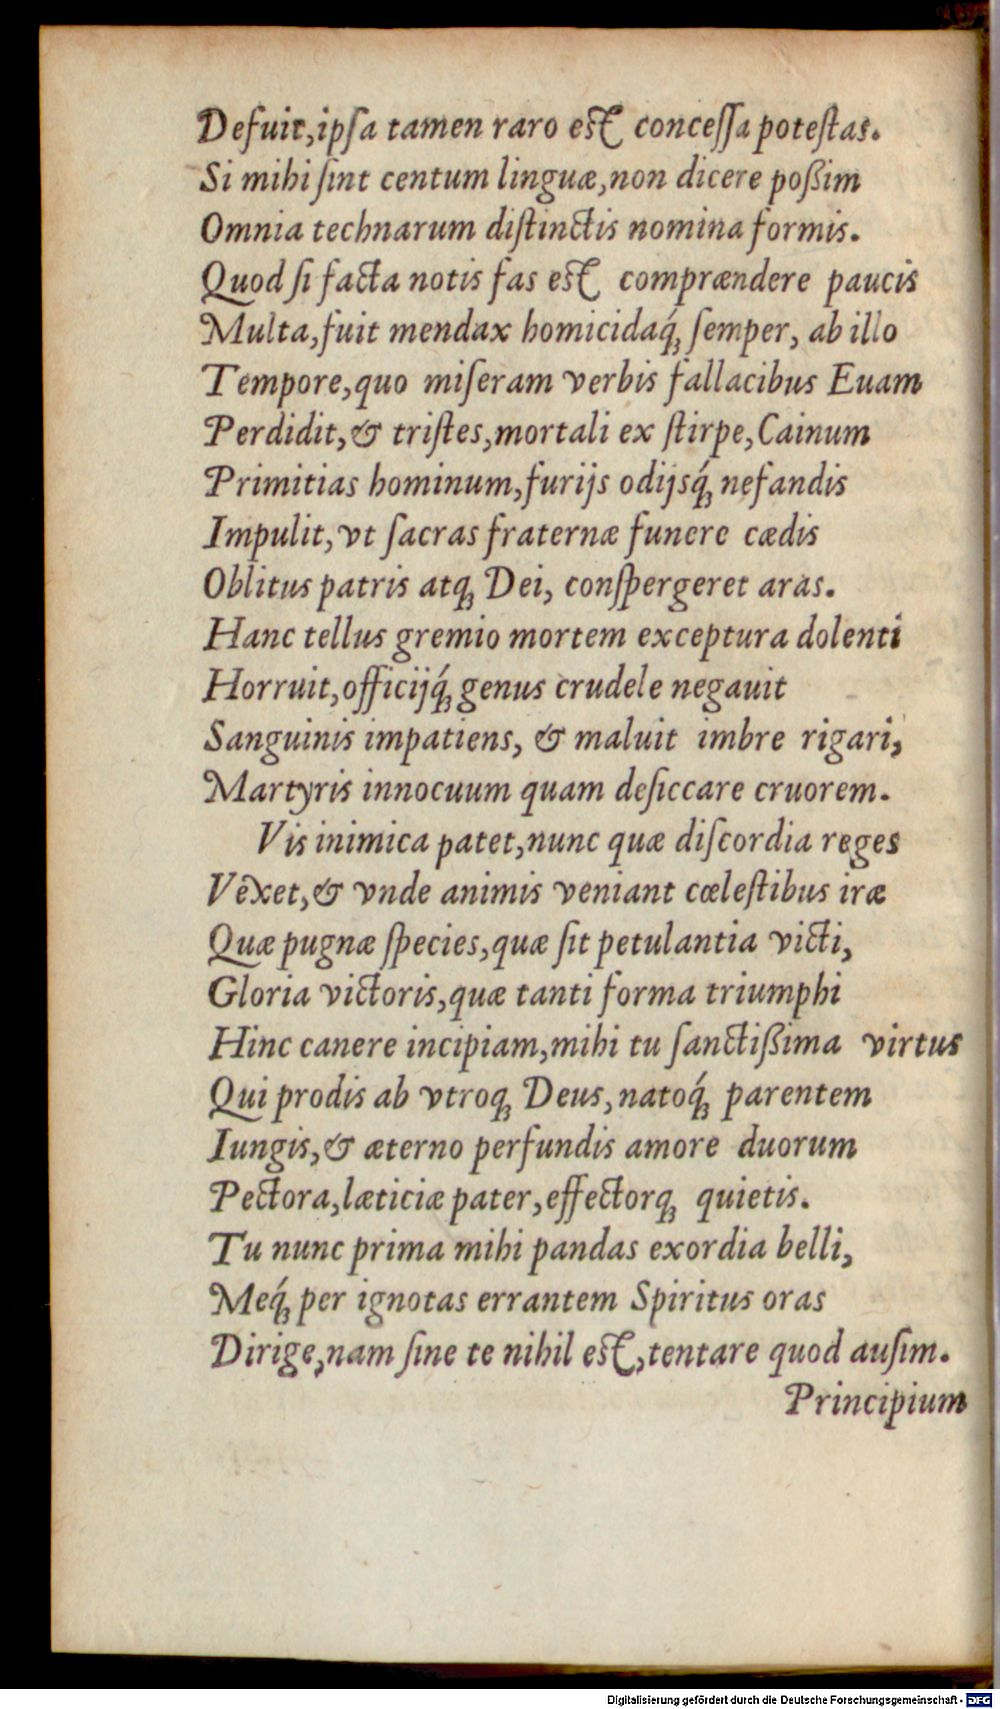 Defuit,ipſa tamen raro eſt conceſſa poteſtas.
Si mihi ſint centum linguæ,non dicere poßim
Omnia technarum diſtinctis nomina formis.
Quod ſi facta notis fas eſt comprændere paucis
Multa,fuit mendax homicidaq́; ſemper, ab illo
Tempore,quo miſeram verbis fallacibus Euam
Perdidit,& triſtes,mortali ex ſtirpe,Cainum
Primitias hominum,furijs odijsq́; nefandis
Impulit,vt ſacras fraternæ funere cædis
Oblitus patris atq; Dei, conſpergeret aras.
Hanc tellus gremio mortem exceptura dolenti
Horruit,officijq́; genus crudele negauit
Sanguinis impatiens, & maluit imbre rigari,
Martyris innocuum quam deſiccare cruorem.
Vis inimica patet,nunc quæ diſcordia reges
Vexet,& vnde animis veniant cœleſtibus iræ
Quæ pugnæ ſpecies,quæ ſit petulantia victi,
Gloria victoris,quæ tanti forma triumphi
Hinc canere incipiam,mihi tu ſanctißima virtus
Qui prodis ab vtroq; Deus,natoq́; parentem
Iungis,& æterno perfundis amore duorum
Pectora,læticiæ pater,effectorq; quietis.
Tu nunc prima mihi pandas exordia belli,
Meq́; per ignotas errantem Spiritus oras
Dirige,nam ſine te nihil eſt,tentare quod auſim.
Principium
Digitalisierung gefördert durch die Deutsche Forschungsgemeinschaft - DFG